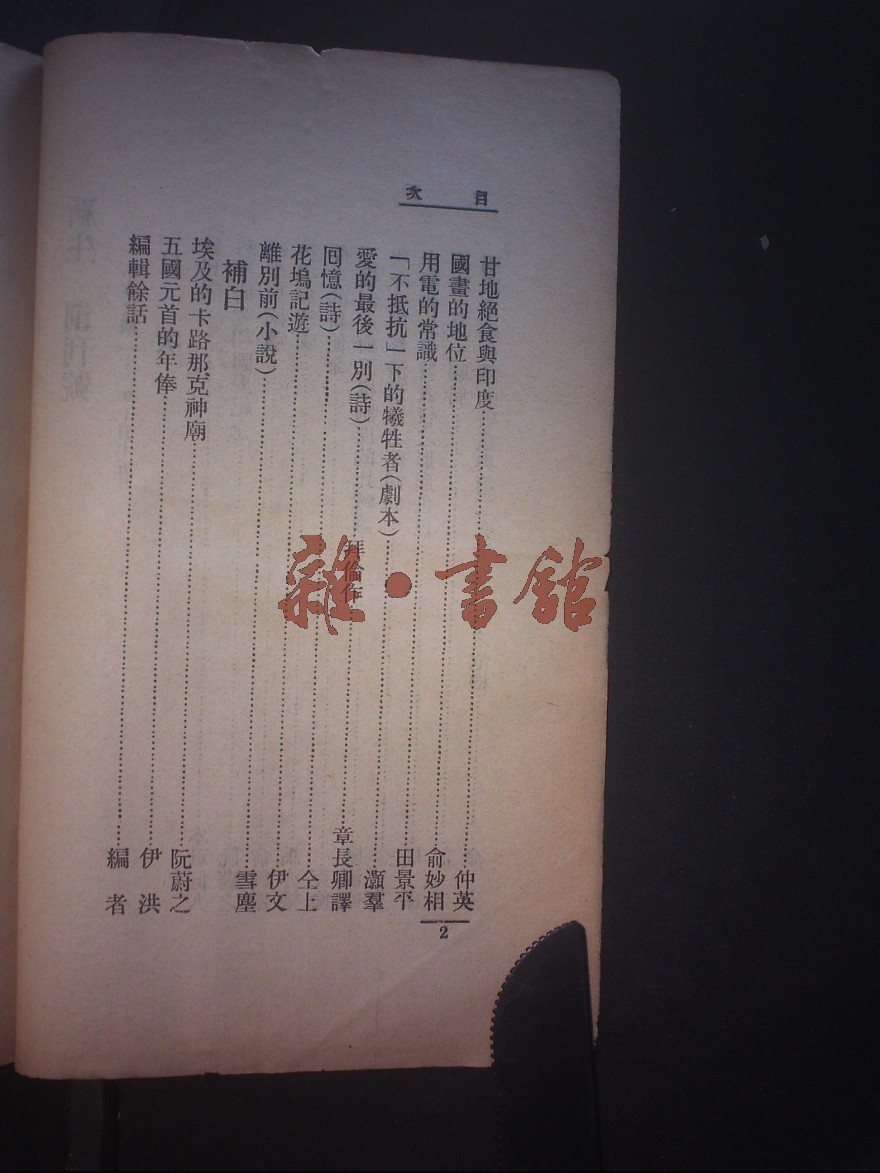 目次
甘地絕食與印度……仲英
國畫的地位……俞妙相
用電的常識……田景平
「不抵抗」下的犧牲者(劇本)……灝羣
愛的最後一別(詩)……拜倫作……章長卿譯
回憶(詩)……仝上
花塢記遊……伊文
離別前(小說)……雪塵
補白
埃及的卡路那克神廟……阮蔚之
五國元首的年俸……伊洪
編輯餘話……編者
2
雜·書館